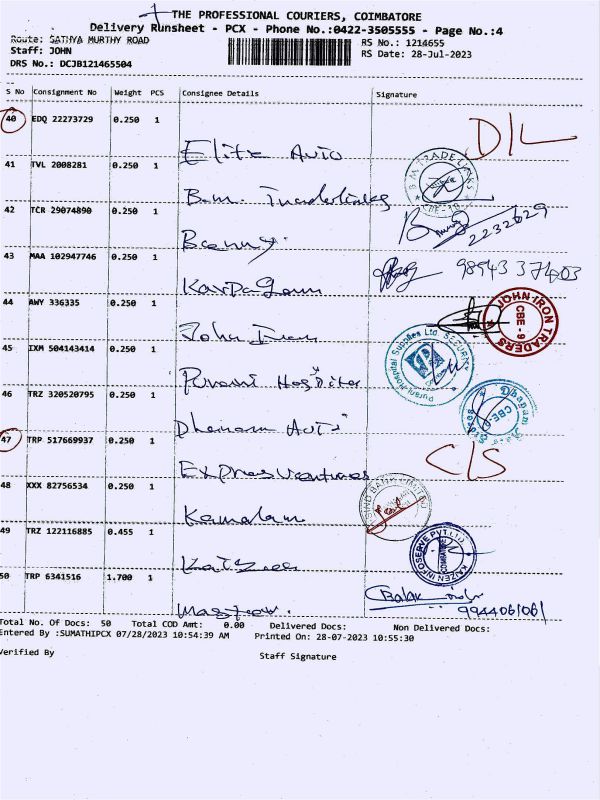 THE PROFESSIONAL COURIERS, COIMBATORE
Delivery Runsheet - PCX - Phone No.:0422-3505555 - Page No.:4
Route: SATHYA MURTHY ROAD
Staff: JOHN
DRS No.: DCJB121465504
RS No.: 1214655
RS Date: 28-Jul-2023
S No Consignment No Weight PCS Consignee Details Signature
40 EDQ 22273729 0.250 1
Elite Auto D/L
41 TVL 2008281 0.250 1
B.M. Tradelinks B.M. TRADE LINKS CBE-18
42 TCR 29074890 0.250 1
2232629
43 MAA 102947746 0.250 1
98943 37403
44 AWY 336335 0.250 1
John Iron JOHN IRON TRADERS CBE - 9
45 IXM 504143414 0.250 1
Purani Hospital Purani Hospital Supplies
46 TRZ 320520795 0.250 1
CBE
47 TRP 517669937 0.250 1
Express Ventures C/S
48 XXX 82756534 0.250 1
49 TRZ 122116885 0.455 1
KAIZEN INFOSERVE PVT LTD
50 TRP 6341516 1.700 1
9944061061
Total No. Of Docs: 50 Total COD Amt: 0.00 Delivered Docs: Non Delivered Docs:
Entered By :SUMATHIPCX 07/28/2023 10:54:39 AM Printed On: 28-07-2023 10:55:30
Verified By Staff Signature